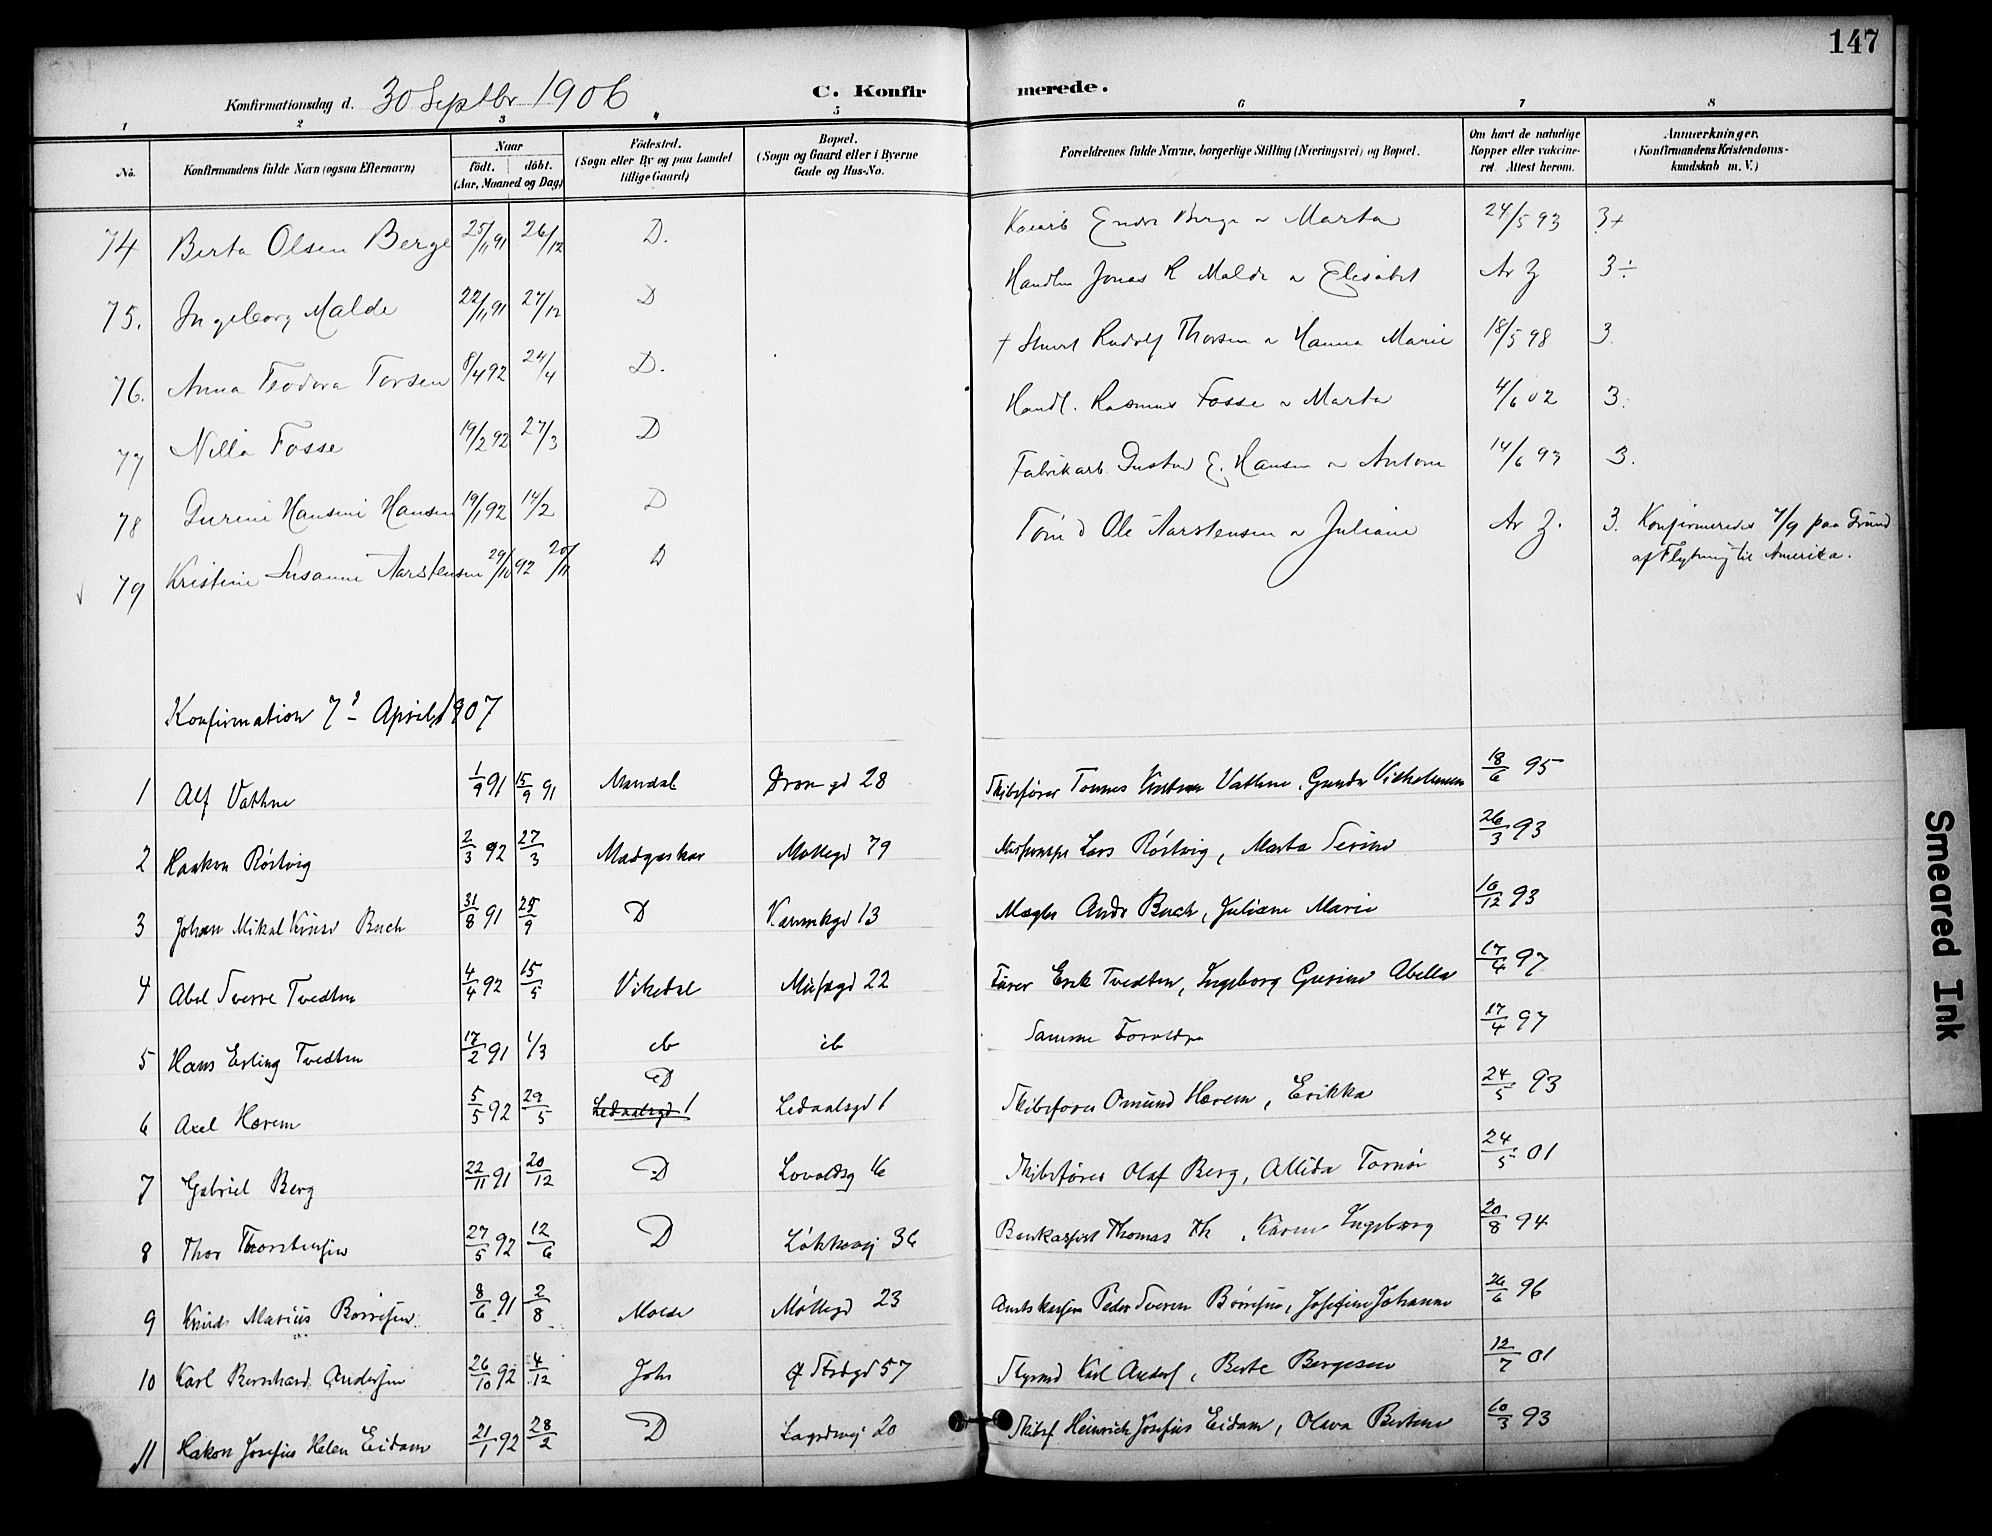 147
Konfirmationsdag d. 30 Septbr 1906
C. Konfirmerede.
1 2 3 4 5 6 7 8
No. Konfirmandens fulde Navn (ogsaa Efternavn) Naar født. døbt. (Aar, Maaned og Dag) Fødested. (Sogn eller By og paa Landet tillige Gaard) Bopæl. (Sogn og Gaard eller i Byerne Gade og Hus-No. Forældrenes fulde Navne, borgerlige Stilling (Næringsvei) og Bopæl. Om havt de naturlige Kopper eller vakcineret. Attest herom. Anmærkninger. (Konfirmandens Kristendomskundskab m. V.)
74 Berta Olsen Berge 25/11 91 26/12 D. Endre Berge & Marta 24/5 93 3+
75. Ingeborg Malde 22/11 91 27/12 D Handlm Jonas R Malde & Elisabet Ar Z 3÷
76. Anna Teodora Torsen 8/4 92 24/4 D. † Rudolf Thorsen & Hanna Marie 18/5 98 3.
77 Nilla Fosse 19/2 92 27/3 D Handl. Rasmus Fosse & Marta 4/6 02 3.
78 Gurine Hansine Hansen 19/1 92 14/2 D Fabrikarb Gustav E. Hansen & Antone 14/6 93 3.
79 Kristine Susanne Aarstensen 29/10 92 20/11 D Ole Aarstensen & Juliane Ar Z. 3. Konfirmeredes 7/9 paa Grund
af Flytning til Amerika.
Konfirmation 7 April 1907
1 Alf Vathne 1/9 91 15/9 91 Mandal gd 28 Skibsfører Tonnes Vathne, Gunda Vilhelmsen 18/6 95
2 Haakon Röstvig 2/3 92 27/3 Madgaskar Møllegd 79 Lars Röstvig, Marta Serine 26/3 93
3 Johan Mikal Kruse Buch 31/8 91 25/9 D 13 Mægler Andr Buch, Juliane Marie 10/12 93
4 Abel Sverre Tvedten 4/4 92 15/5 Vikedal Musægd 22 Erik Tvedten, Ingeborg Gurine Abella 17/4 97
5 Hans Erling Tvedten 17/2 91 1/3 ib ib Samme Forældre 17/4 97
6 Axel Hærem 5/5 92 29/5 Ledaalsgd 1 D Ledaalsgd 1 Skibsfører Omund Hærem, Erikka 24/5 93
7 Gabriel Berg 22/11 91 20/12 D 16 Skibsfører Olaf Berg, Allida Tornöe 24/5 01
8 Thor Thorstensen 27/5 92 12/6 D Løkkevej 36 Thomas Th, Karen Ingeborg 20/8 94
9 Knud Marius Børresen 8/6 91 2/8 Molde Møllegd 23 Amtskasser Peder Sverre Børresen, Josefine Johanne 26/6 96
10 Karl Bernhard Andersen 26/10 92 4/12 Joh Ø Strdgd 57 Styrmd Karl Anders, Berte Bergesen 12/7 01
11 Hakon Josefus Helen Eidam 21/1 92 28/2 D Lagrdvej 20 Skibsf Heinrich Josefus Eidam, Olava Bertine 10/3 93
Smeared Ink